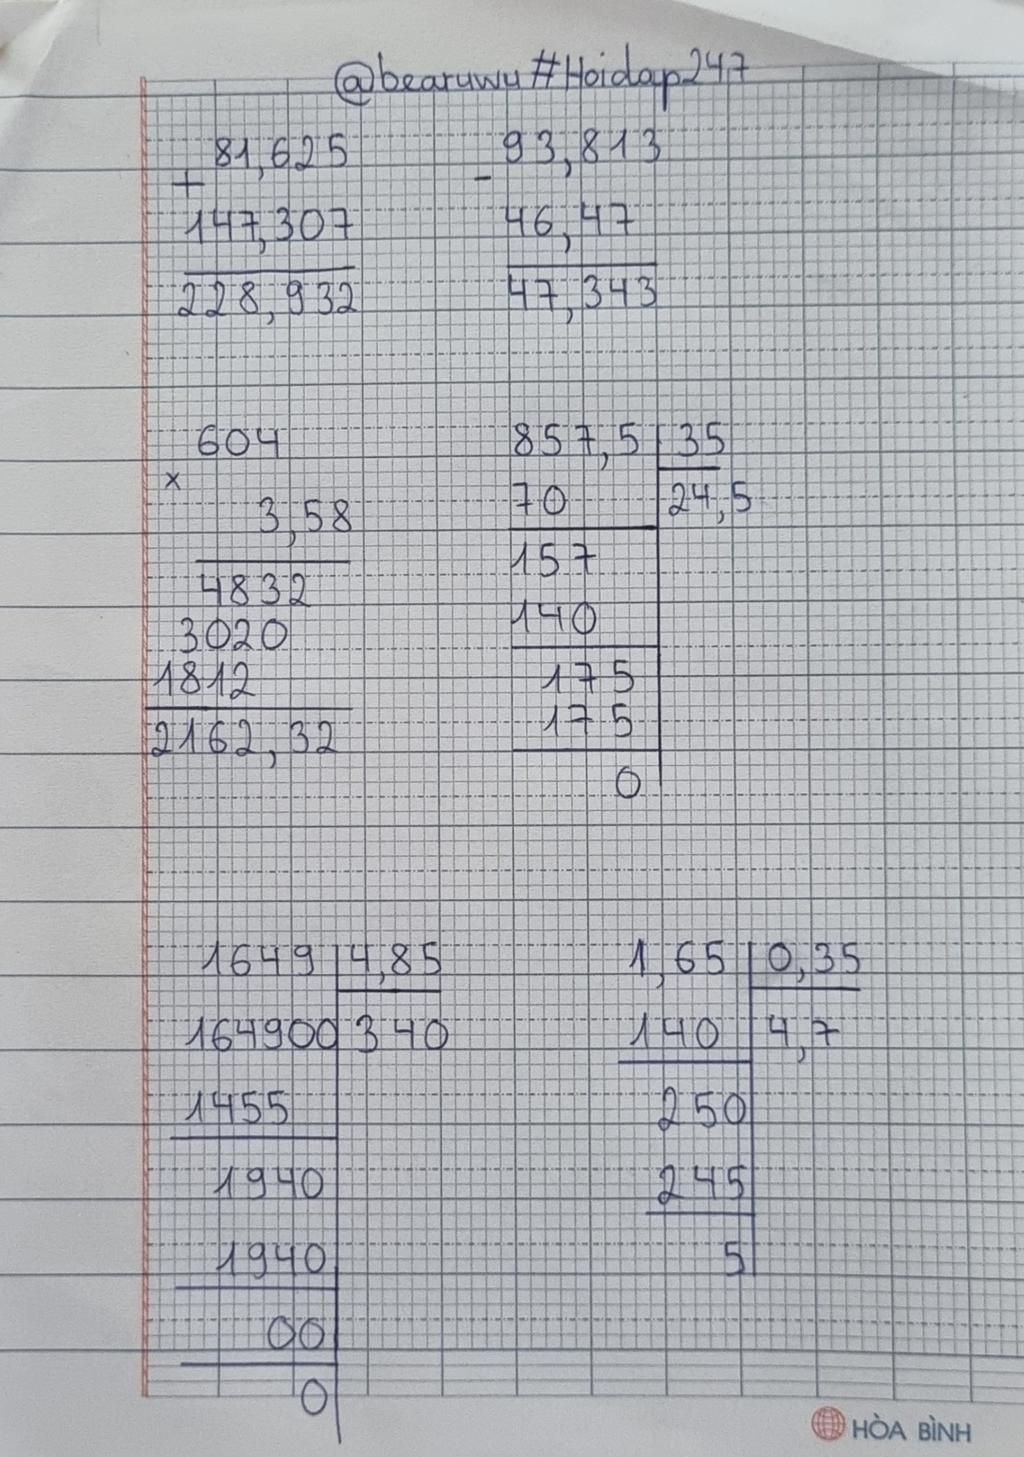 @bearuwu#Hoidap247
81,625
+
147,307
228,932
93,813
-
46,47
47,343
604
x
3,58
4832
3020
1812
2162,32
857,5 35
70 24,5
157
140
175
175
0
1649 4,85
164900 340
1455
1940
1940
00
0
1,65 0,35
140 4,7
250
245
5
HÒA BÌNH